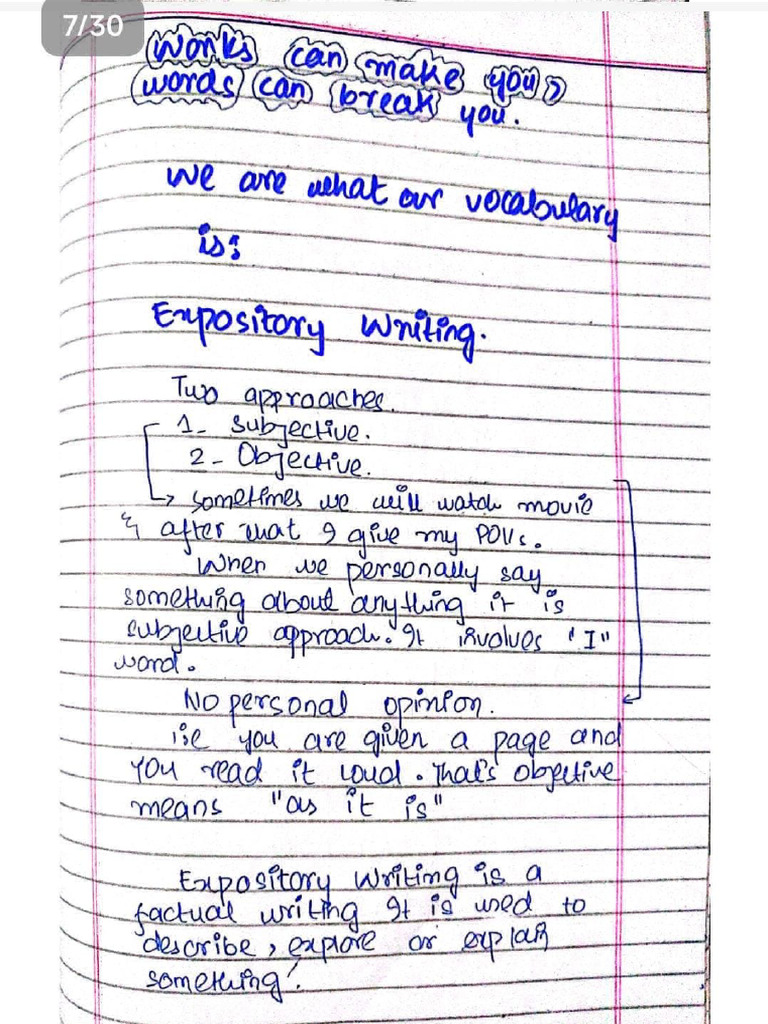 7/30
Works can make you,
words can break you.
We are what our vocabulary
is:
Expository Writing.
Two approaches.
1- Subjective.
2- Objective.
→ sometimes we will watch movie
& after that I give my POVs.
When we personally say
something about anything it is
subjective approach. It involves "I"
word.
No personal opinion.
i:e you are given a page and
you read it loud. That's objective
means "as it is"
Expository Writing is a
factual writing It is used to
describe, explore or explain
something!